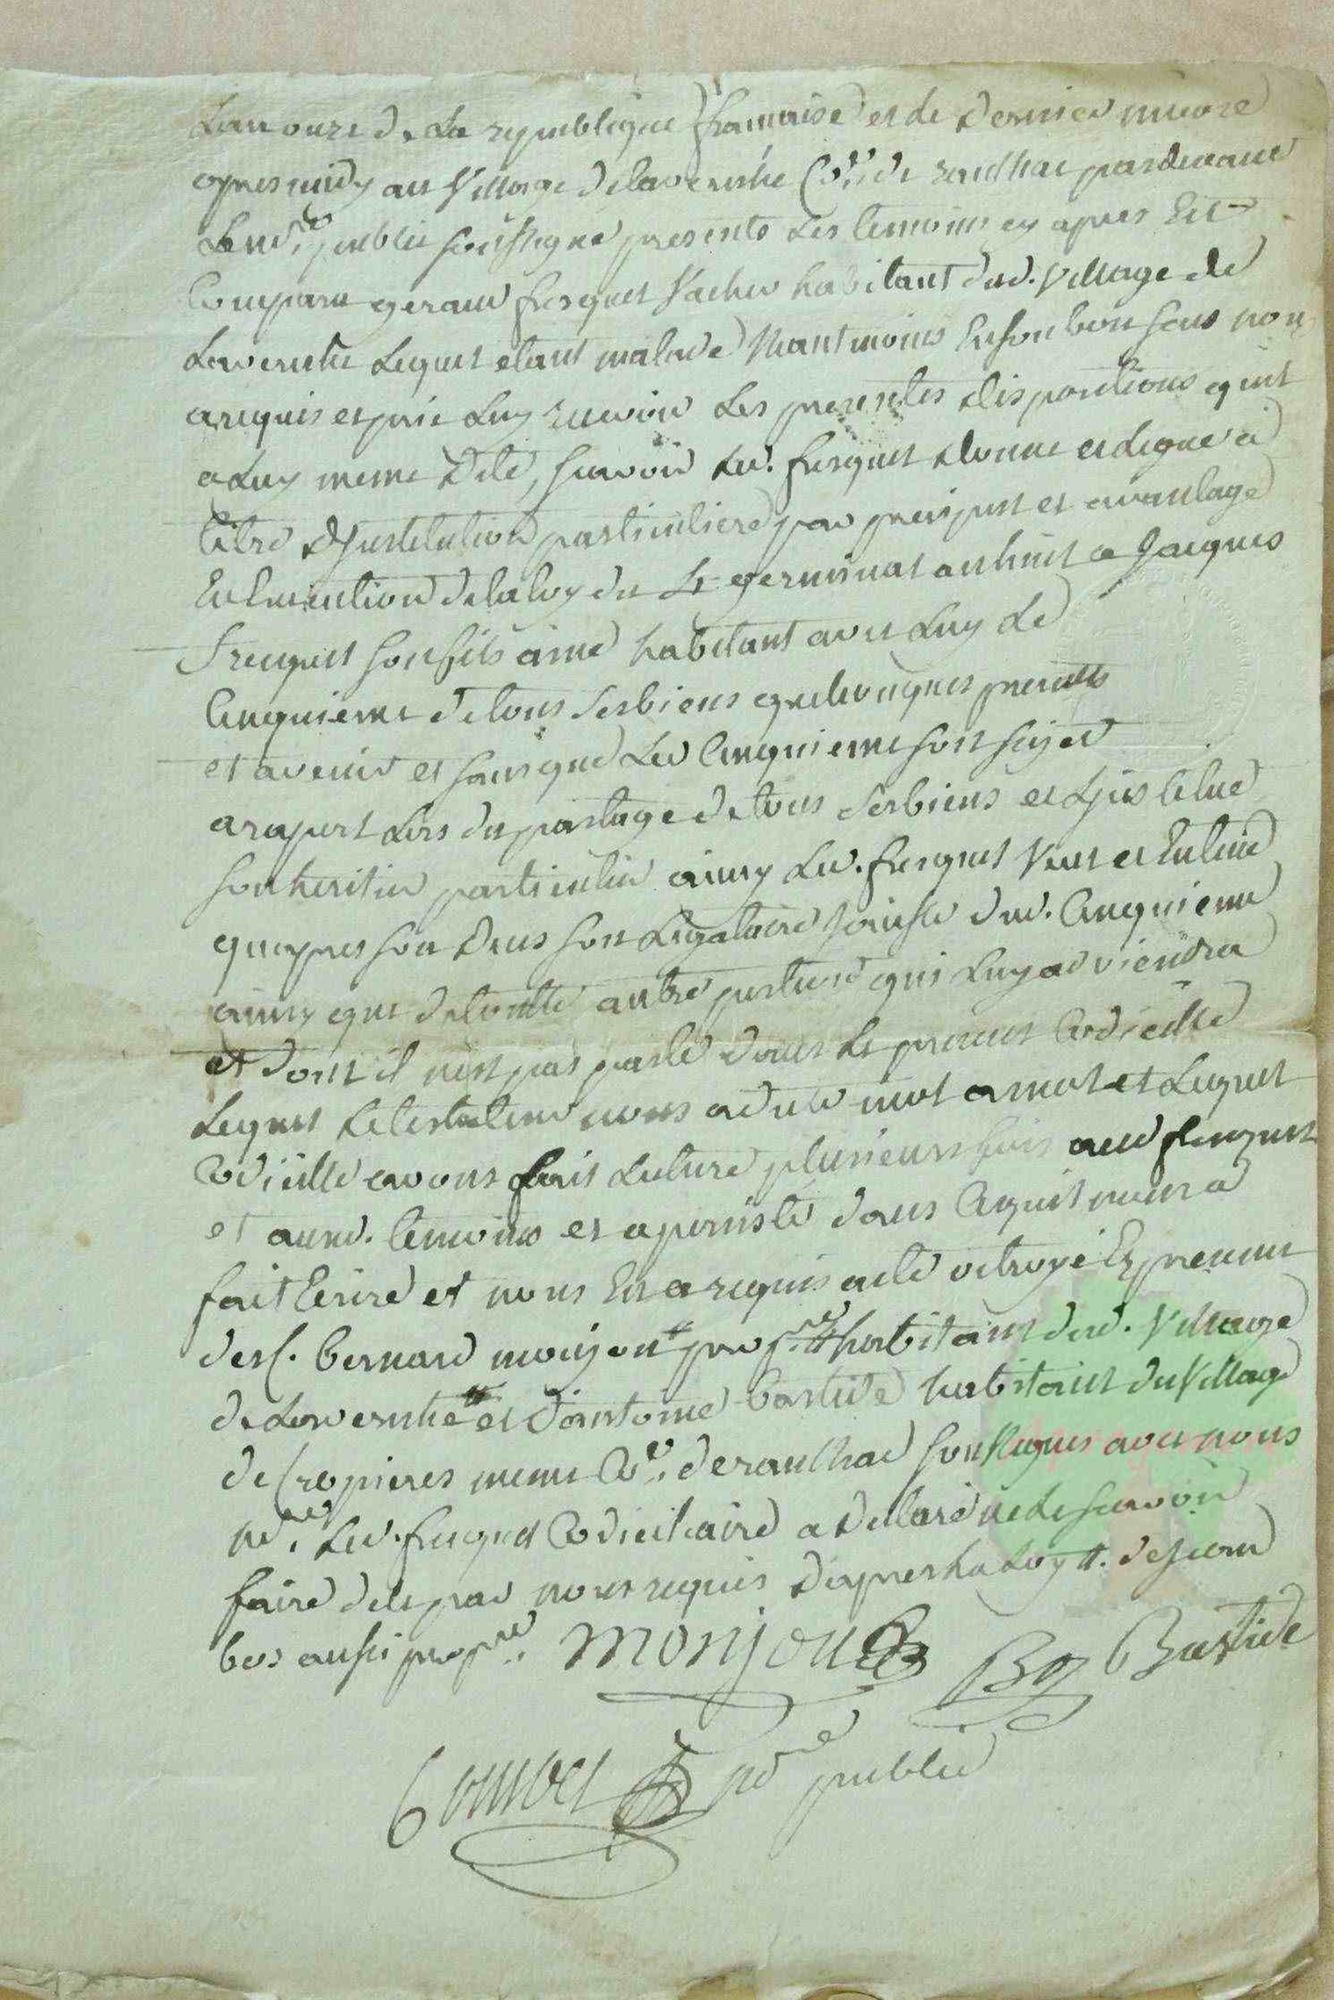 Lan onze de La republique francaise et le dernier nivose
apres midy au Village de laveruhe Cne de raulhac pardevant
Le nre public soussigné presents Les temoins cy apres
Comparu geraud fresquet Vacher habitant dud. Village de
Laveruhe Lequel etant malade Neantmoins En son bon sens nou
a requis et prie Luy recevoir Les presentes dispositions quil
a Luy meme dité, scavoir Led. fresquet donne et Legue a
titre dJnstitution particuliere par preciput et avantage
En Execution de la loy du 4 germinal an huit a Jacques
frequet son fils ainé habitant avec Luy Le
Cinquieme de tous ses biens quelconques presents
et avenir et sans que Led Cinquieme soit sujet
a raport Lors du partage de tous ses biens et Ljnstitue
son heritier particulier ainsy Led. fresquet Veut et Entend
quapres son deces son Legataire Jouisse dud. Cinquieme
ainsy que de toutte autre portion qui Luy adviendra
et dont il nest pas parlé dans Le present Codicille
Lequel Le testateur nous a dicté mot a mot et Lequel
Codicille avons fait Lecture plusieurs fois aud fresquet
et auxd. temoins et a persisté dans Ce quil nous a
fait Ecrire et nous En a requis acte octroyé En presence
des C. bernard proprre habitant dud. Village
de Laveruhe et dantoine bastide habitant du Village
de Cropieres meme Cne de raulhac soussignes avec nous
nre Led. fresquet Codicillaire a declaré ne le scavoir
faire de ce par nous requis dapres La Loy #. de jean
bos aussi proprre. monjou Bos Bastide
nre public